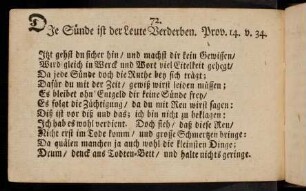 72.
Die Sünde ist der Leute Verderben. Prov. 14. v. 34.
Itzt gehst du sicher hin/ und machst dir kein Gewissen/
Wird gleich in Werck und Wort viel Eitelkeit gehegt/
Da jede Sünde doch die Ruthe bey sich trägt;
Dafür du mit der Zeit/ gewiß wirst leiden müssen;
Es bleibet ohn' Entgeld dir keine Sünde frey/
Es folgt die Züchtigung/ da du mit Reu wirst sagen:
Diß ist vor diß und das; ich bin nicht zu beklagen:
Ich hab es wohl verdient. Doch sieh/ daß diese Reu/
Nicht erst im Tode komm/ und grosse Schmertzen bringe:
Da quälen manchen ja auch wohl die kleinsten Dinge:
Drum/ denck ans Todten-Bett/ und halte nichts geringe.